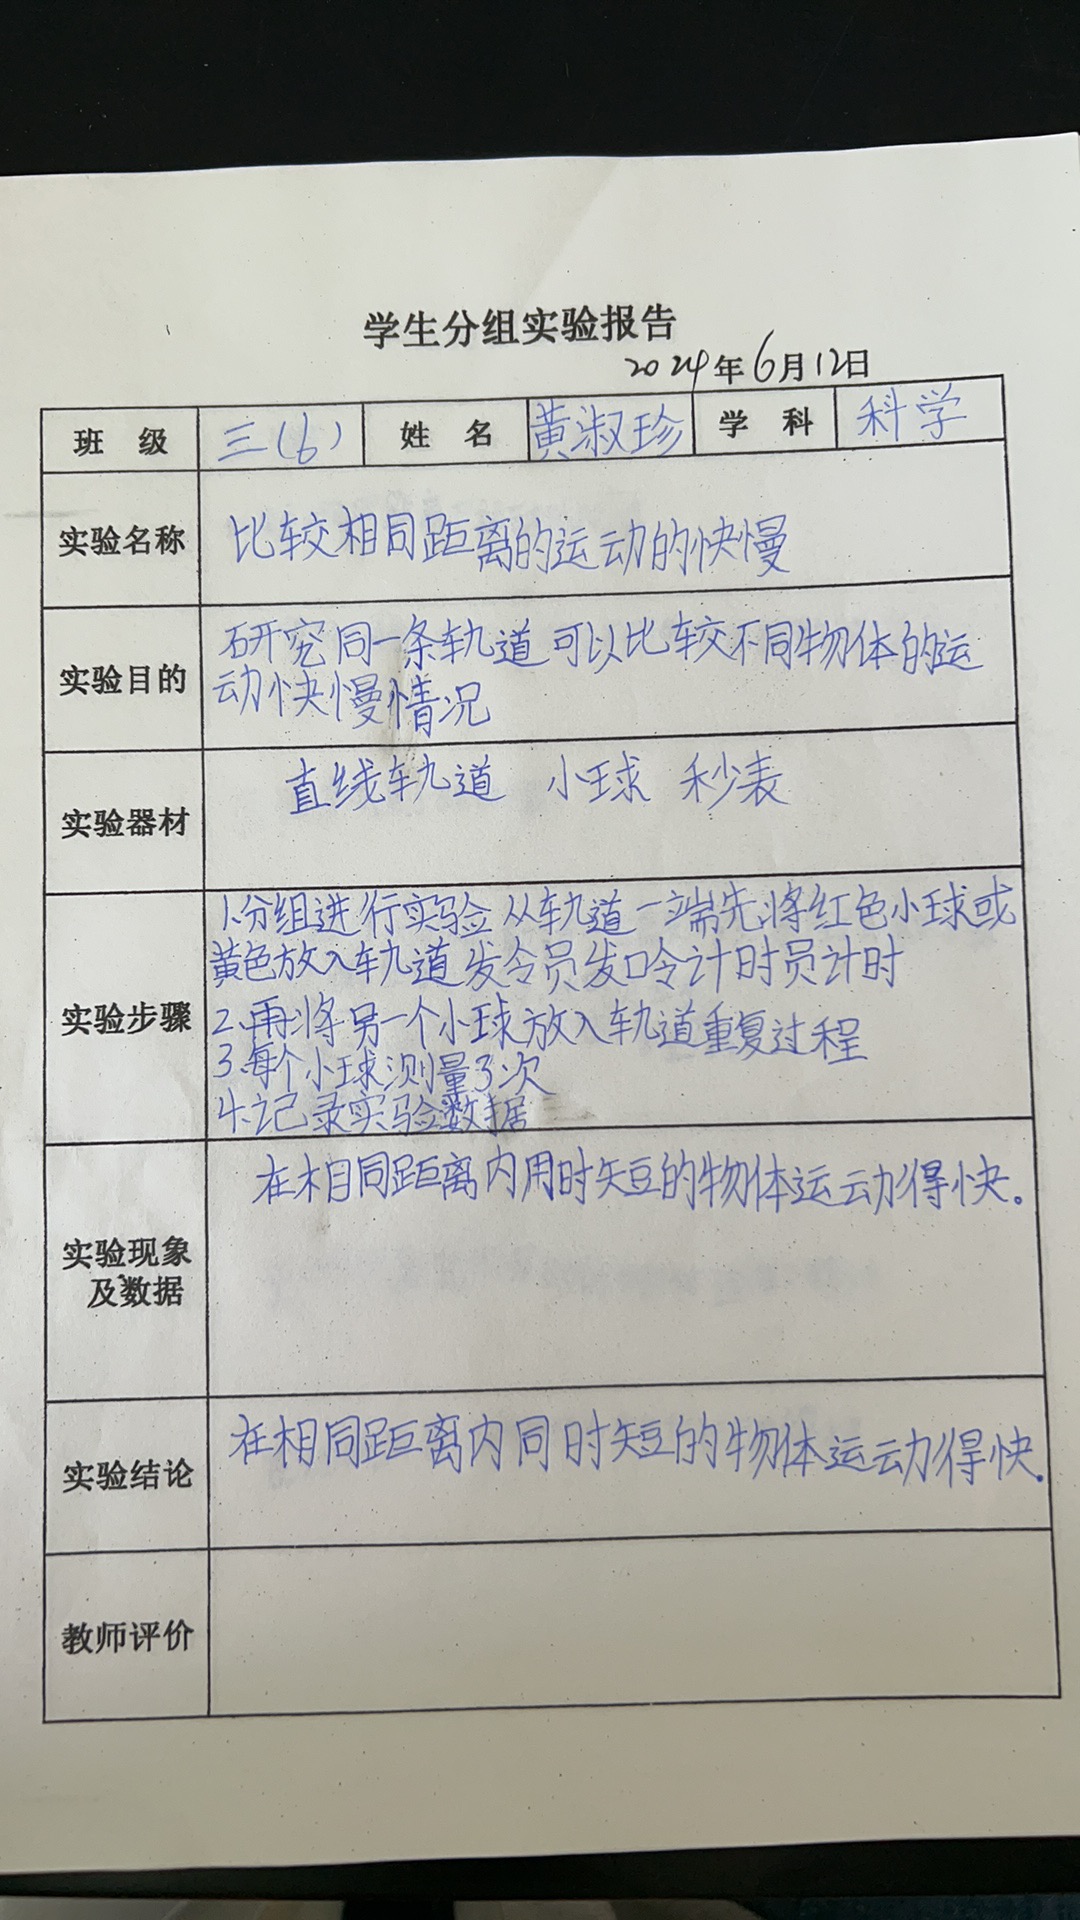 学生分组实验报告
2024年6月12日
班 级 三(6) 姓 名 黄淑珍 学 科 科学
实验名称 比较相同距离的运动的快慢
实验目的 研究同一条轨道可以比较不同物体的运
动快慢情况
实验器材 直线轨道 小球 秒表
实验步骤 1.分组进行实验 从轨道一端先将红色小球或
黄色放入轨道 发令员发口令计时员计时
2.再将另一个小球放入轨道重复过程
3.每个小球测量3次
4.记录实验数据
实验现象
及数据 在相同距离内用时短的物体运动得快。
实验结论 在相同距离内同时短的物体运动得快.
教师评价